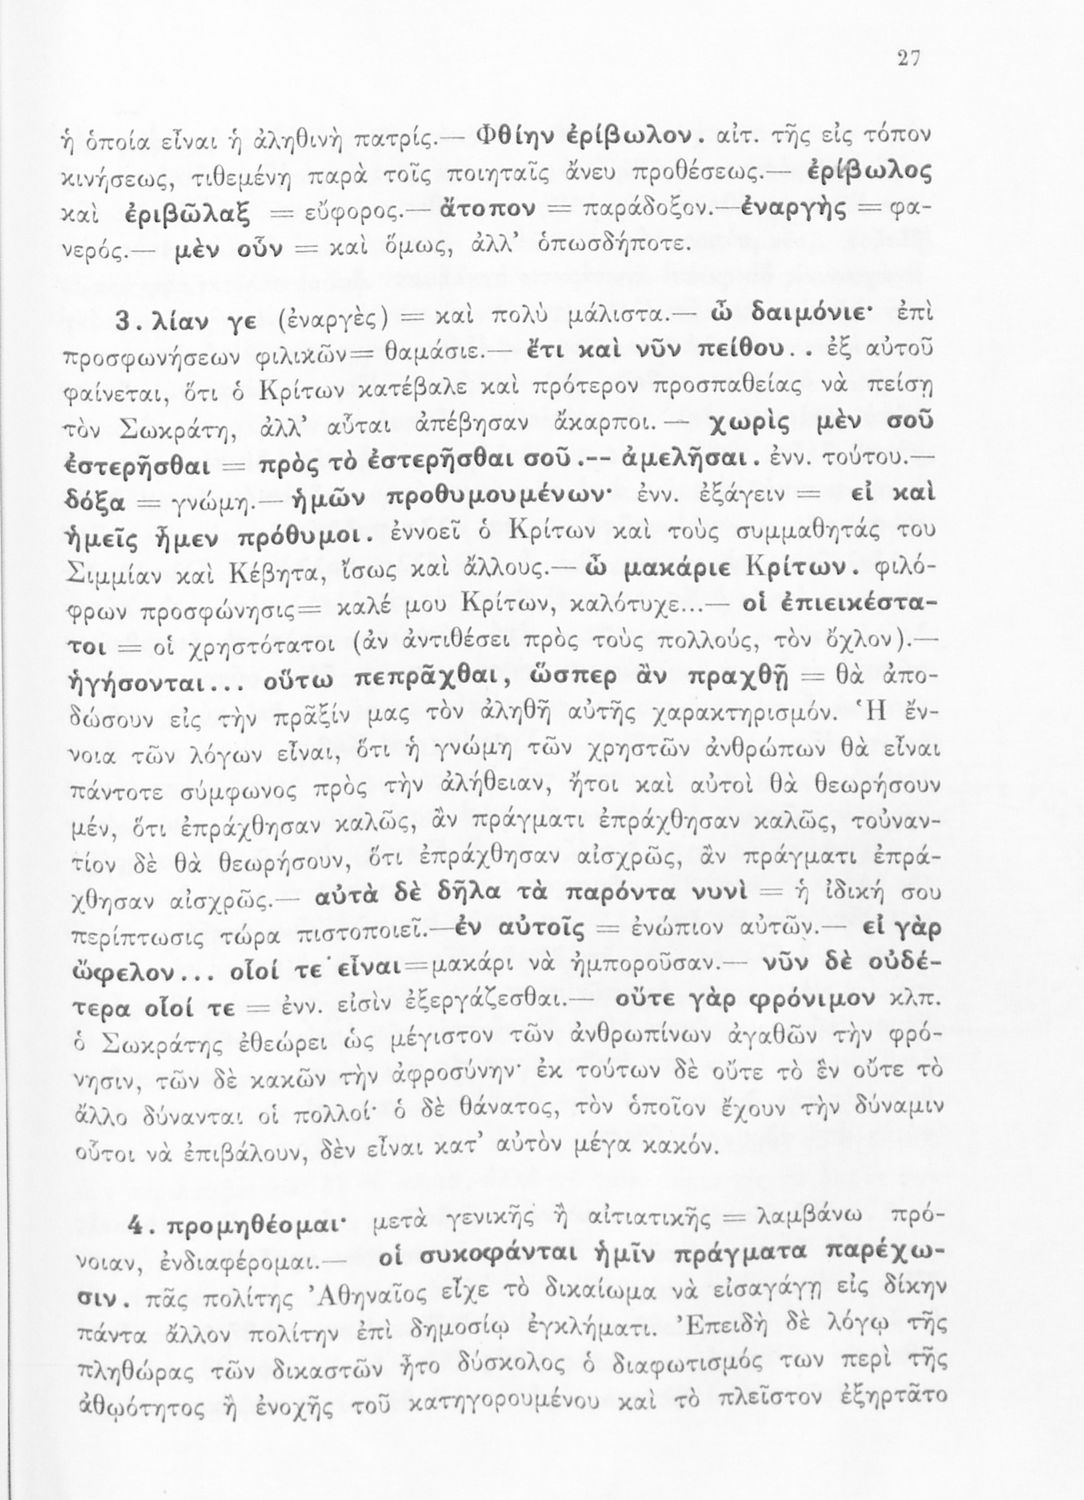 27
ἡ ὁποία εἶναι ἡ ἀληθινὴ πατρίς.— Φθίην ἐρίβωλον. αἰτ. τῆς εἰς τόπον
κινήσεως, τιθεμένη παρὰ τοῖς ποιηταῖς ἄνευ προθέσεως.— ἐρίβωλος
καὶ ἐριβῶλαξ = εὔφορος.— ἄτοπον = παράδοξον.—ἐναργὴς = φα-
νερός.— μὲν οὖν = καὶ ὅμως, ἀλλ’ ὁπωσδήποτε.
3. λίαν γε (ἐναργὲς) = καὶ πολὺ μάλιστα.— ὦ δαιμόνιε· ἐπὶ
προσφωνήσεων φιλικῶν= θαμάσιε.— ἔτι καὶ νῦν πείθου.. ἐξ αὐτοῦ
φαίνεται, ὅτι ὁ Κρίτων κατέβαλε καὶ πρότερον προσπαθείας νὰ πείσῃ
τὸν Σωκράτη, ἀλλ’ αὗται ἀπέβησαν ἄκαρποι. — χωρὶς μὲν σοῦ
ἐστερῆσθαι = πρὸς τὸ ἐστερῆσθαι σοῦ.-- ἀμελῆσαι. ἐνν. τούτου.—
δόξα = γνώμη.— ἡμῶν προθυμουμένων· ἐνν. ἐξάγειν = εἰ καὶ
ἡμεῖς ἦμεν πρόθυμοι. ἐννοεῖ ὁ Κρίτων καὶ τοὺς συμμαθητάς του
Σιμμίαν καὶ Κέβητα, ἴσως καὶ ἄλλους.— ὦ μακάριε Κρίτων. φιλό-
φρων προσφώνησις= καλέ μου Κρίτων, καλότυχε...— οἱ ἐπιεικέστα-
τοι = οἱ χρηστότατοι (ἀν ἀντιθέσει πρὸς τοὺς πολλούς, τὸν ὄχλον).—
ἡγήσονται... οὕτω πεπρᾶχθαι, ὥσπερ ἂν πραχθῇ = θὰ ἀπο-
δώσουν εἰς τὴν πρᾶξίν μας τὸν ἀληθῆ αὐτῆς χαρακτηρισμόν. Ἡ ἔν-
νοια τῶν λόγων εἶναι, ὅτι ἡ γνώμη τῶν χρηστῶν ἀνθρώπων θὰ εἶναι
πάντοτε σύμφωνος πρὸς τὴν ἀλήθειαν, ἤτοι καὶ αὐτοὶ θὰ θεωρήσουν
μέν, ὅτι ἐπράχθησαν καλῶς, ἂν πράγματι ἐπράχθησαν καλῶς, τοὐναν-
τίον δὲ θὰ θεωρήσουν, ὅτι ἐπράχθησαν αἰσχρῶς, ἂν πράγματι ἐπρά-
χθησαν αἰσχρῶς.— αὐτὰ δὲ δῆλα τὰ παρόντα νυνὶ = ἡ ἰδική σου
περίπτωσις τώρα πιστοποιεῖ.—ἐν αὐτοῖς = ἐνώπιον αὐτῶν.— εἰ γὰρ
ὤφελον... οἷοί τε εἶναι=μακάρι νὰ ἠμποροῦσαν.— νῦν δὲ οὐδέ-
τερα οἷοί τε = ἐνν. εἰσὶν ἐξεργάζεσθαι.— οὔτε γὰρ φρόνιμον κλπ.
ὁ Σωκράτης ἐθεώρει ὡς μέγιστον τῶν ἀνθρωπίνων ἀγαθῶν τὴν φρό-
νησιν, τῶν δὲ κακῶν τὴν ἀφροσύνην· ἐκ τούτων δὲ οὔτε τὸ ἓν οὔτε τὸ
ἄλλο δύνανται οἱ πολλοί· ὁ δὲ θάνατος, τὸν ὁποῖον ἔχουν τὴν δύναμιν
οὗτοι νὰ ἐπιβάλουν, δὲν εἶναι κατ’ αὐτὸν μέγα κακόν.
4. προμηθέομαι· μετὰ γενικῆς ἢ αἰτιατικῆς = λαμβάνω πρό-
νοιαν, ἐνδιαφέρομαι.— οἱ συκοφάνται ἡμῖν πράγματα παρέχω-
σιν. πᾶς πολίτης Ἀθηναῖος εἶχε τὸ δικαίωμα νὰ εἰσαγάγῃ εἰς δίκην
πάντα ἄλλον πολίτην ἐπὶ δημοσίῳ ἐγκλήματι. Ἐπειδὴ δὲ λόγῳ τῆς
πληθώρας τῶν δικαστῶν ἦτο δύσκολος ὁ διαφωτισμός των περὶ τῆς
ἀθῳότητος ἢ ἐνοχῆς τοῦ κατηγορουμένου καὶ τὸ πλεῖστον ἐξηρτᾶτο